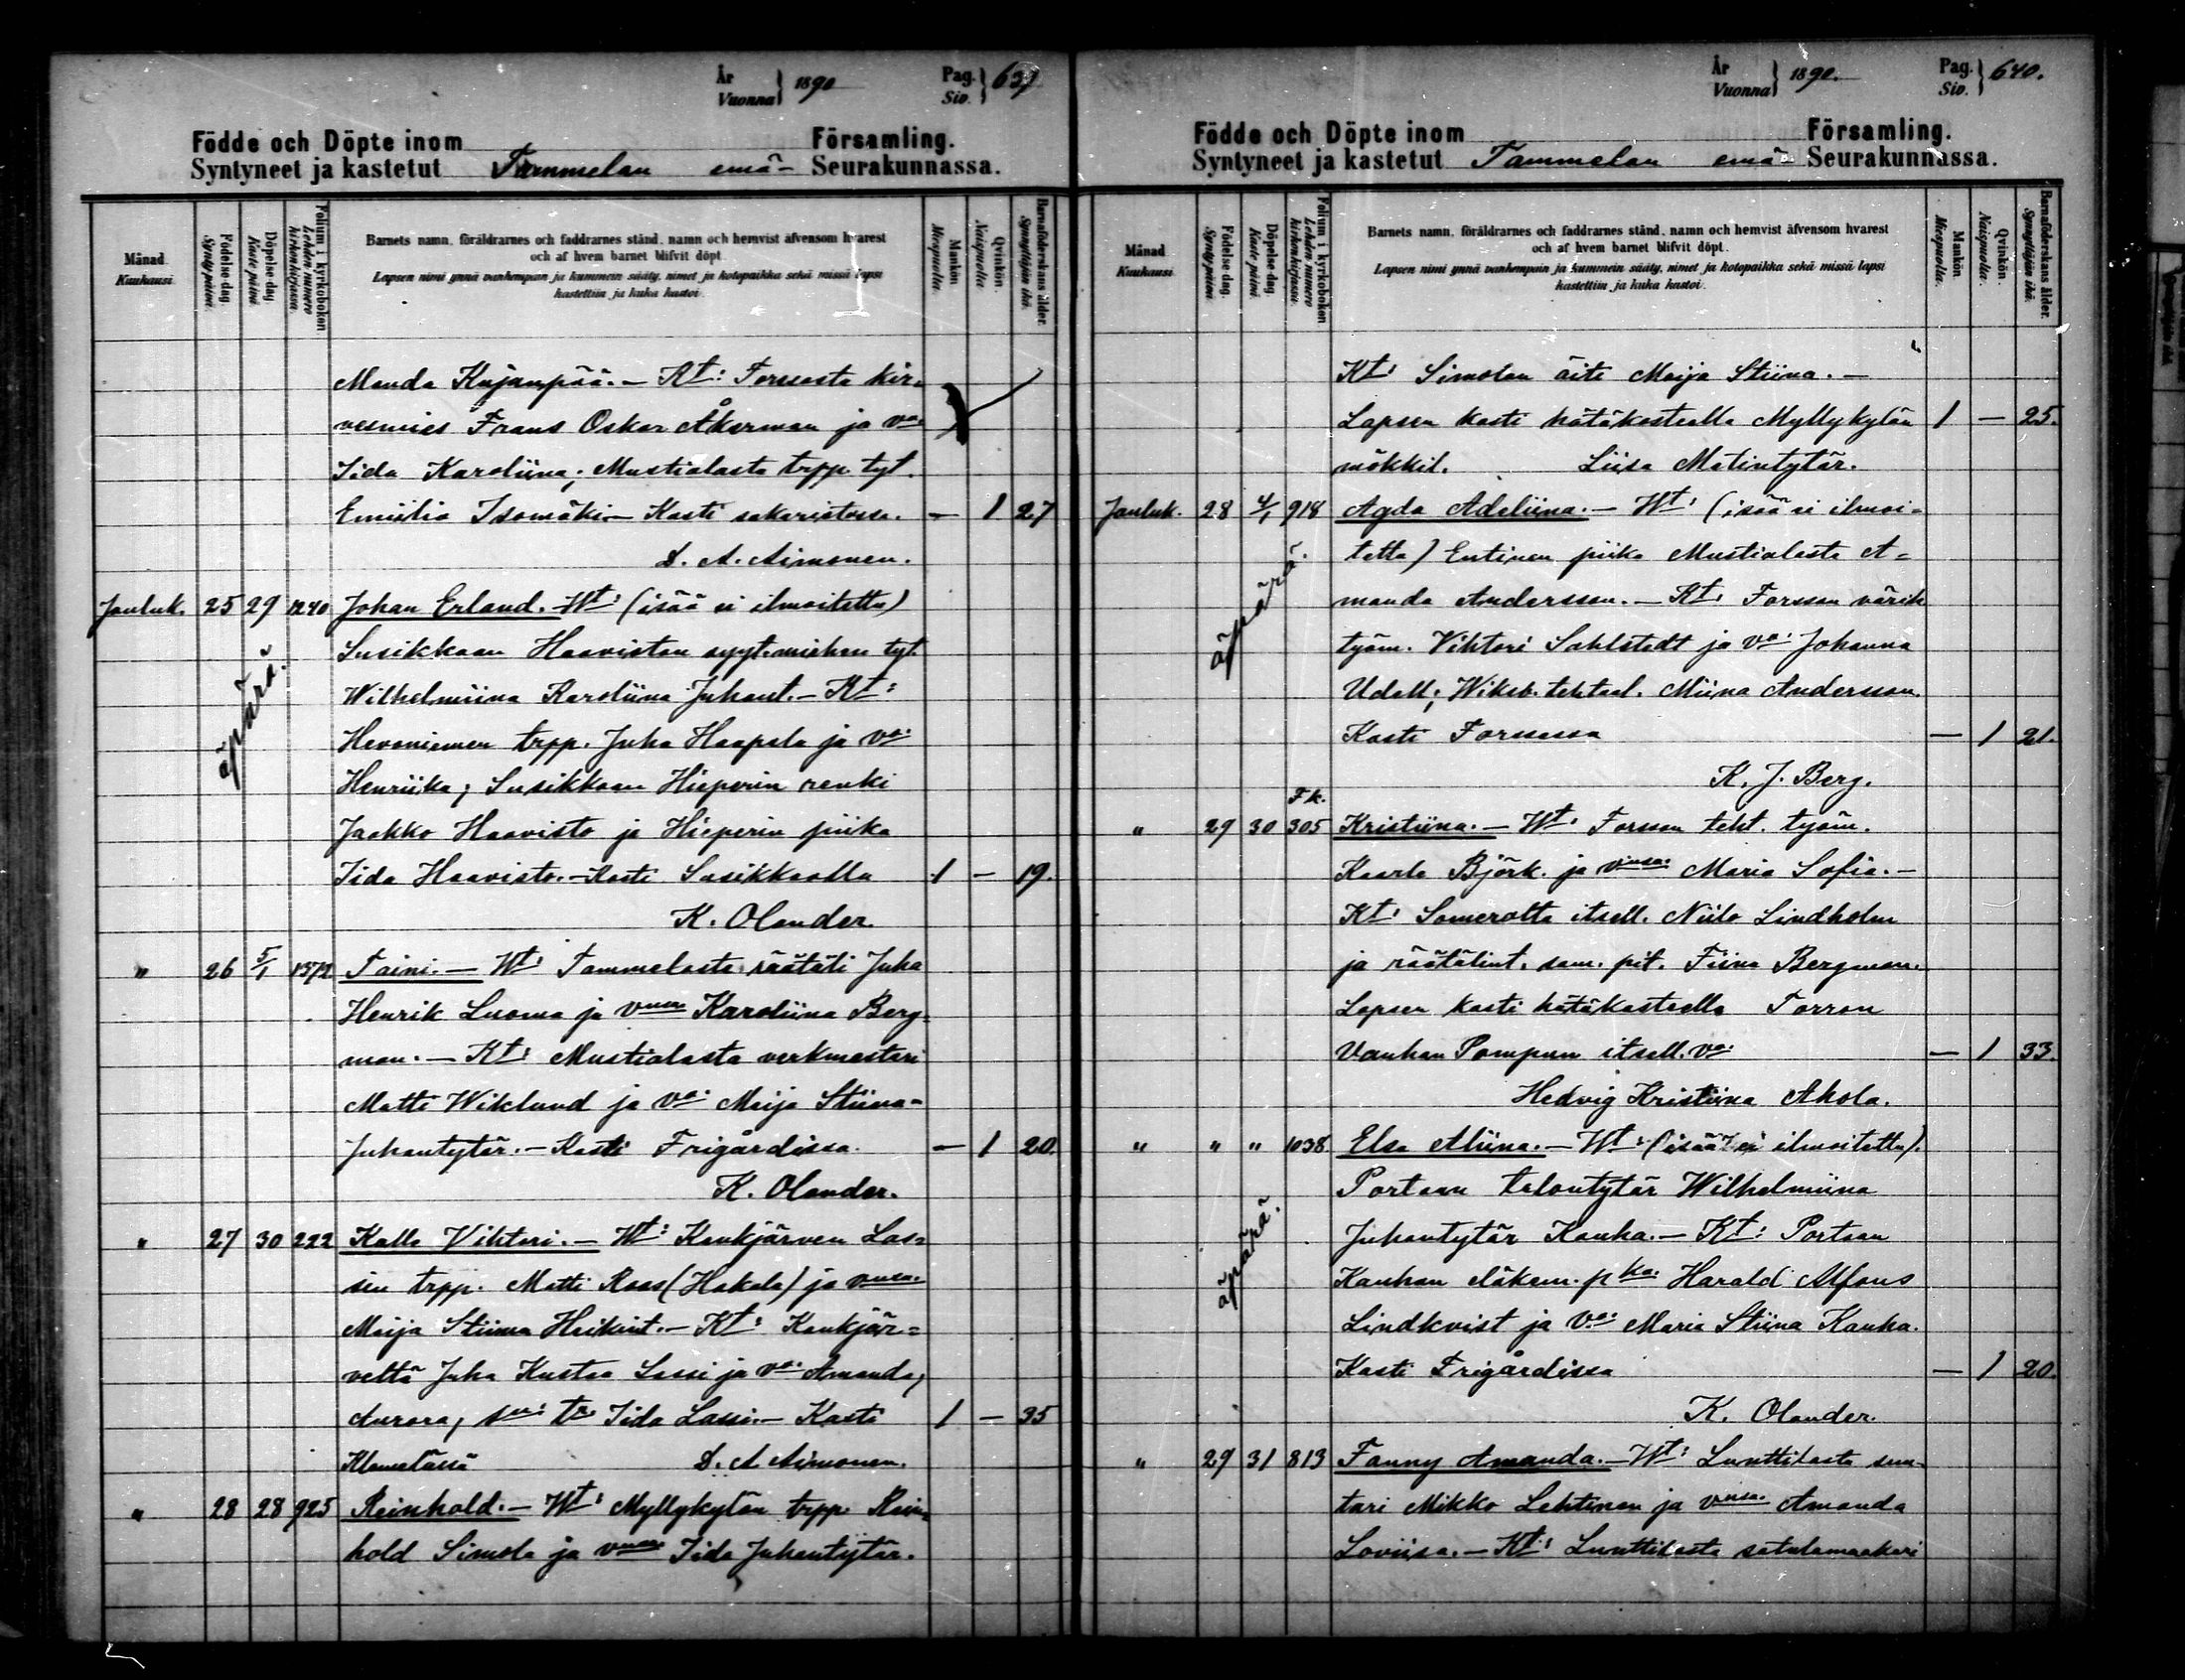 År
Vuonna } 1890
Pag.
Siv. } 639
Födde och Döpte inom Församling.
Syntyneet ja kastetut Tammelan emä- Seurakunnassa.
Månad
Kuukausi.
Födelse dag.
Synty päivä.
Döpelse dag.
Kaste päivä.
Folium i kyrkobokon.
Lehden numero
kirkonkirjassa.
Barnets namn, föräldrarnes och faddrarnes stånd, namn och hemvist äfvensom hvarest
och af hvem barnet blifvit döpt.
Lapsen nimi ynnä vanhempain ja kummein sääty, nimet ja kotopaikka sekä missä lapsi
kastettiin ja kuka kastoi.
Mankön.
Miespuolta.
Qvinkön.
Naispuolta.
Barnaföderskans ålder.
Synnyttäjän ikä.
Manda Kujanpää. - Kt: Forssasta kir-
vesmies Frans Oskar Åkerman ja va:
Iida Karoliina; Mustialasta trpp. tyt.
Emiilia Isomäki - Kasti sakaristossa. - 1 27
D. A. Aimonen.
Jouluk. 25 29 1240 Johan Erland. - Wt: (isää ei ilmoitettu)
Susikkaan Haaviston syyt.miehen tyt.
äpärä.
Wilhelmiina Karoliina Juhant. - Kt:
Hevoniemen trpp. Juha Haapala ja va:
Henriika; Susikkaan Hieperin renki
Jaakko Haavisto ja Hieperin piika
Iida Haavisto. - Kasti Susikkaalla 1 - 19.
K. Olander.
" 26 5/1 1572 Taimi. - Wt: Tammelasta räätäli Juha
Henrik Luoma ja vnsa Karoliina Berg-
man. - Kt: Mustialasta verkmestari
Matti Wiklund ja va: Maija Stiina
Juhantytär. - Kasti Frigårdissa. - 1 20.
K. Olander.
" 27 30 222 Kalle Vihtori. - Wt: Kaukjärven Las-
sin trpp. Matti Raas (Hakala) ja vnsa.
Maija Stiina Heikint. - Kt: Kaukjär-
veltä Juha Kustaa Lassi ja va: Amanda,
Aurora, Iida Lassi. - Kasti 1 - 35
Klemelässä D. A. Aimonen.
" 28 28 925 Reinhold. - Wt: Myllykylän trpp. Rein-
hold Simola ja vnsa Iida Juhantytär.
År
Vuonna } 1890.
Pag.
Siv. } 640.
Födde och Döpte inom Församling.
Syntyneet ja kastetut Tammelan emä- Seurakunnassa.
Månad
Kuukausi.
Födelse dag.
Synty päivä.
Döpelse dag.
Kaste päivä.
Folium i kyrkobokon
Lehden numero
kirkonkirjassa.
Barnets namn, föräldrarnes och faddrarnes stånd, namn och hemvist äfvensom hvarest
och af hvem barnet blifvit döpt.
Lapsen nimi ynnä vanhempain ja kummein sääty, nimet ja kotopaikka sekä missä lapsi
kastettiin ja kuka kastoi.
Mankön.
Miespuolta.
Qvinkön.
Naispuolta.
Barnaföderskans ålder.
Synnyttäjän ikä.
Kt: Simolan äiti Maija Stiina. -
Lapsen kasti hätäkasteella Myllykylän 1 - 25.
mökkil. Liisa Matintytär.
Jouluk. 28 4/1 918 Agda Adeliina. - Wt: (isää ei ilmoi-
tettu) Entinen piika Mustialasta A-
äpärä.
manda Andersson. - Kt: Forssan värik
työm. Vihtori Sahlstedt ja va: Johanna
Udell; Wiksb. tehtaal. Miina Andersson.
Kasti Forssassa - 1 21.
K. J. Berg.
F.k.
" 29 30 305 Kristiina. - Wt: Forssan teht. työm.
Kaarle Björk. ja vnsa: Maria Sofia. -
Kt: Somerolta itsell. Niilo Lindholm
ja räätälint. sam. pit. Fiina Bergman.
Lapsen kasti hätäkasteella Torron
Vanhan Pompun itsell. va: - 1 33.
Hedvig Kristiina Ahola.
" " " 1038 Elsa Aliina. - Wt: (isää ei ilmoitettu).
Portaan talontytär Wilhelmiina
äpärä.
Juhantytär Kauha. - Kt: Portaan
Kauhan eläkem. pka. Harald Alfons
Lindkvist ja Va: Maria Stiina Kauha.
Kasti Frigårdissa - 1 20.
K. Olander.
" 29 31 813 Fanny Amanda. - Wt: Lunttilasta sun-
tari Mikko Lehtinen ja vnsa. Amanda
Loviisa. - Kt: Lunttilasta satulamaakari